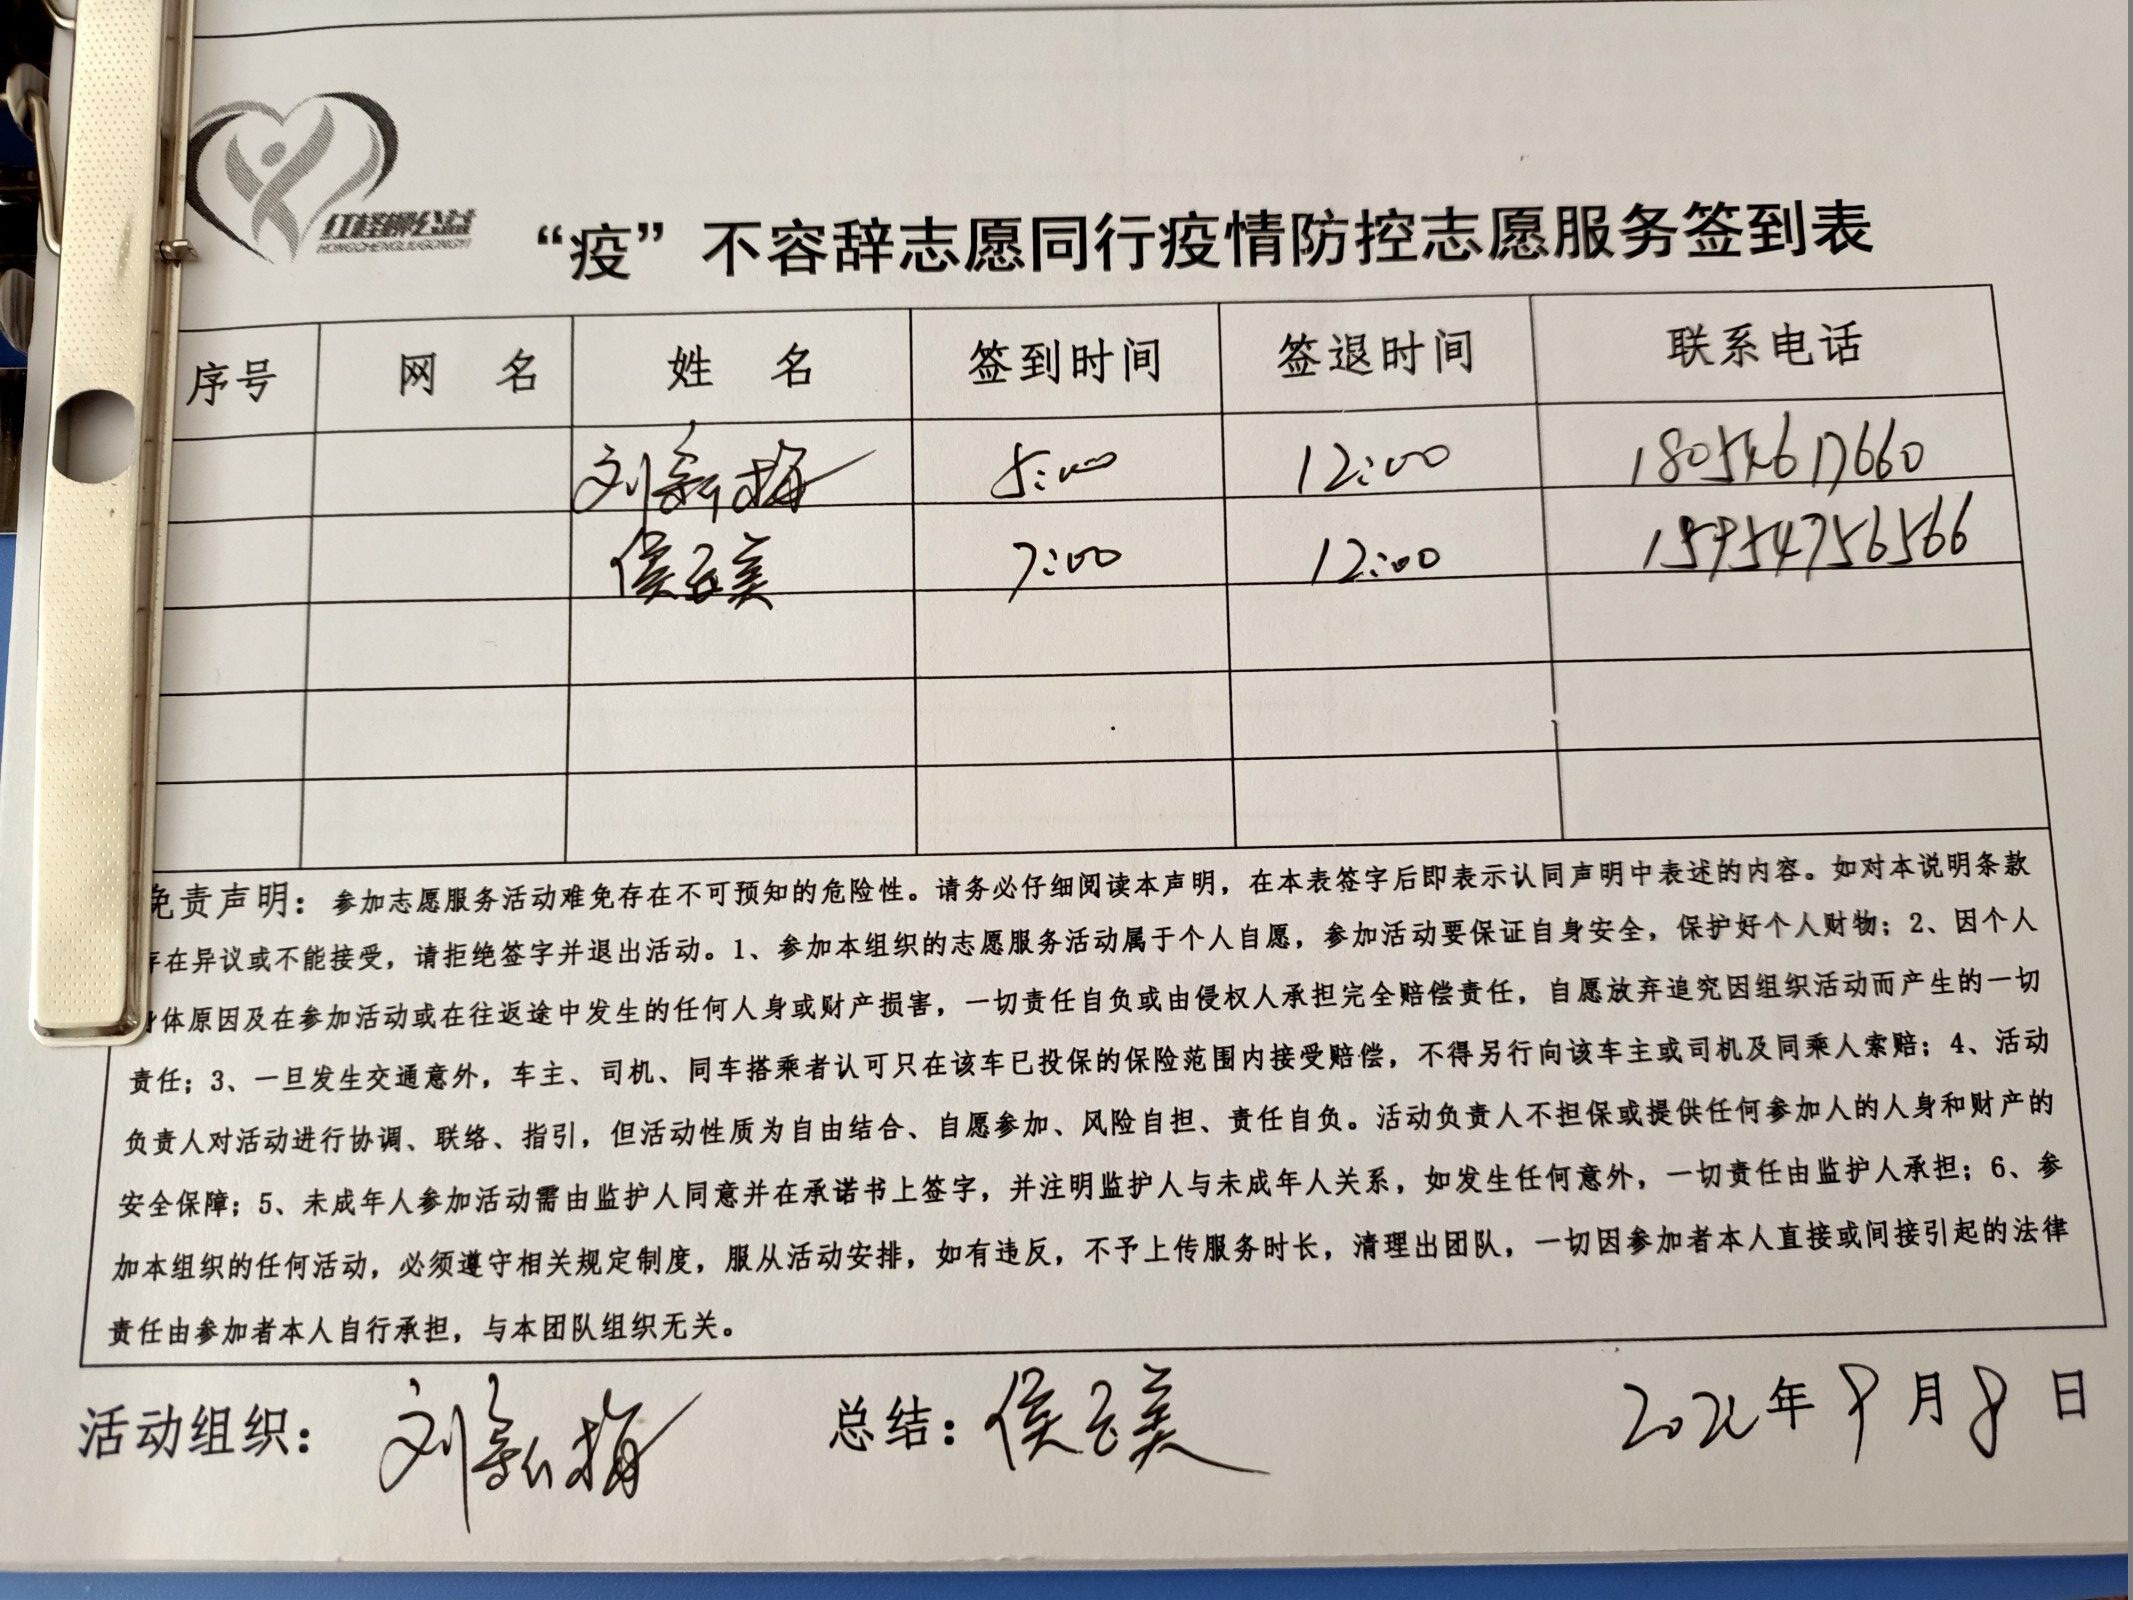 HONGCHENGLIUGONGYI
“疫”不容辞志愿同行疫情防控志愿服务签到表
序号 网 名 姓 名 签到时间 签退时间 联系电话
刘新梅 5:00 12:00 18054617660
侯玉美 7:00 12:00 15954756566
免责声明：参加志愿服务活动难免存在不可预知的危险性。请务必仔细阅读本声明，在本表签字后即表示认同声明中表述的内容。如对本说明条款
存在异议或不能接受，请拒绝签字并退出活动。1、参加本组织的志愿服务活动属于个人自愿，参加活动要保证自身安全，保护好个人财物；2、因个人
身体原因及在参加活动或在往返途中发生的任何人身或财产损害，一切责任自负或由侵权人承担完全赔偿责任，自愿放弃追究因组织活动而产生的一切
责任；3、一旦发生交通意外，车主、司机、同车搭乘者认可只在该车已投保的保险范围内接受赔偿，不得另行向该车主或司机及同乘人索赔；4、活动
负责人对活动进行协调、联络、指引，但活动性质为自由结合、自愿参加、风险自担、责任自负。活动负责人不担保或提供任何参加人的人身和财产的
安全保障；5、未成年人参加活动需由监护人同意并在承诺书上签字，并注明监护人与未成年人关系，如发生任何意外，一切责任由监护人承担；6、参
加本组织的任何活动，必须遵守相关规定制度，服从活动安排，如有违反，不予上传服务时长，清理出团队，一切因参加者本人直接或间接引起的法律
责任由参加者本人自行承担，与本团队组织无关。
活动组织：刘新梅 总结：侯玉美 年 9 月 8 日